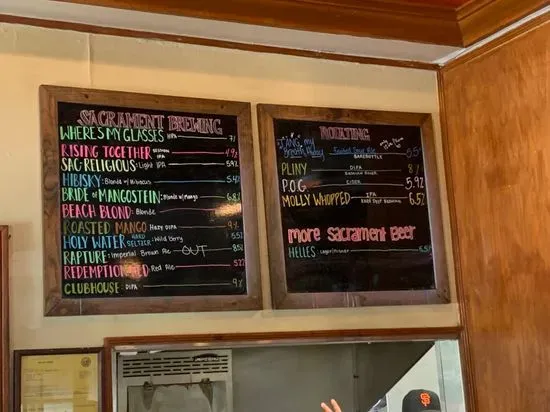 SACRAMENT BREWING
WHERES MY GLASSES IPA 7%
RISING TOGETHER SESSION IPA 4.9%
SAC-RELIGIOUS: Light IPA 5.9%
HIBISKY: Blonde w/ Hibiscus 5.4%
BRIDE OF MANGOSTEIN: Blonde w/ Mango 6.8%
BEACH BLOND: Blonde
ROASTED MANGO HAZY DIPA 9%
HOLY WATER HARD SELTZER: Wild Berry 5%
RAPTURE: Imperial Brown Ale OUT 8.5%
REDEMPTION RED Red Ale 5.2%
CLUBHOUSE: DIPA 9%
ROTATING
TANG my Fruited Sour Ale 5.5%
BAREBOTTLE
PLINY DIPA 8%
RUSSIAN RIVER
P.O.G CIDER 5.9%
MOLLY WHOPPED IPA 6.5%
KNEE DEEP BREWING
More Sacrament Beer
HELLES: 5.5%
SF